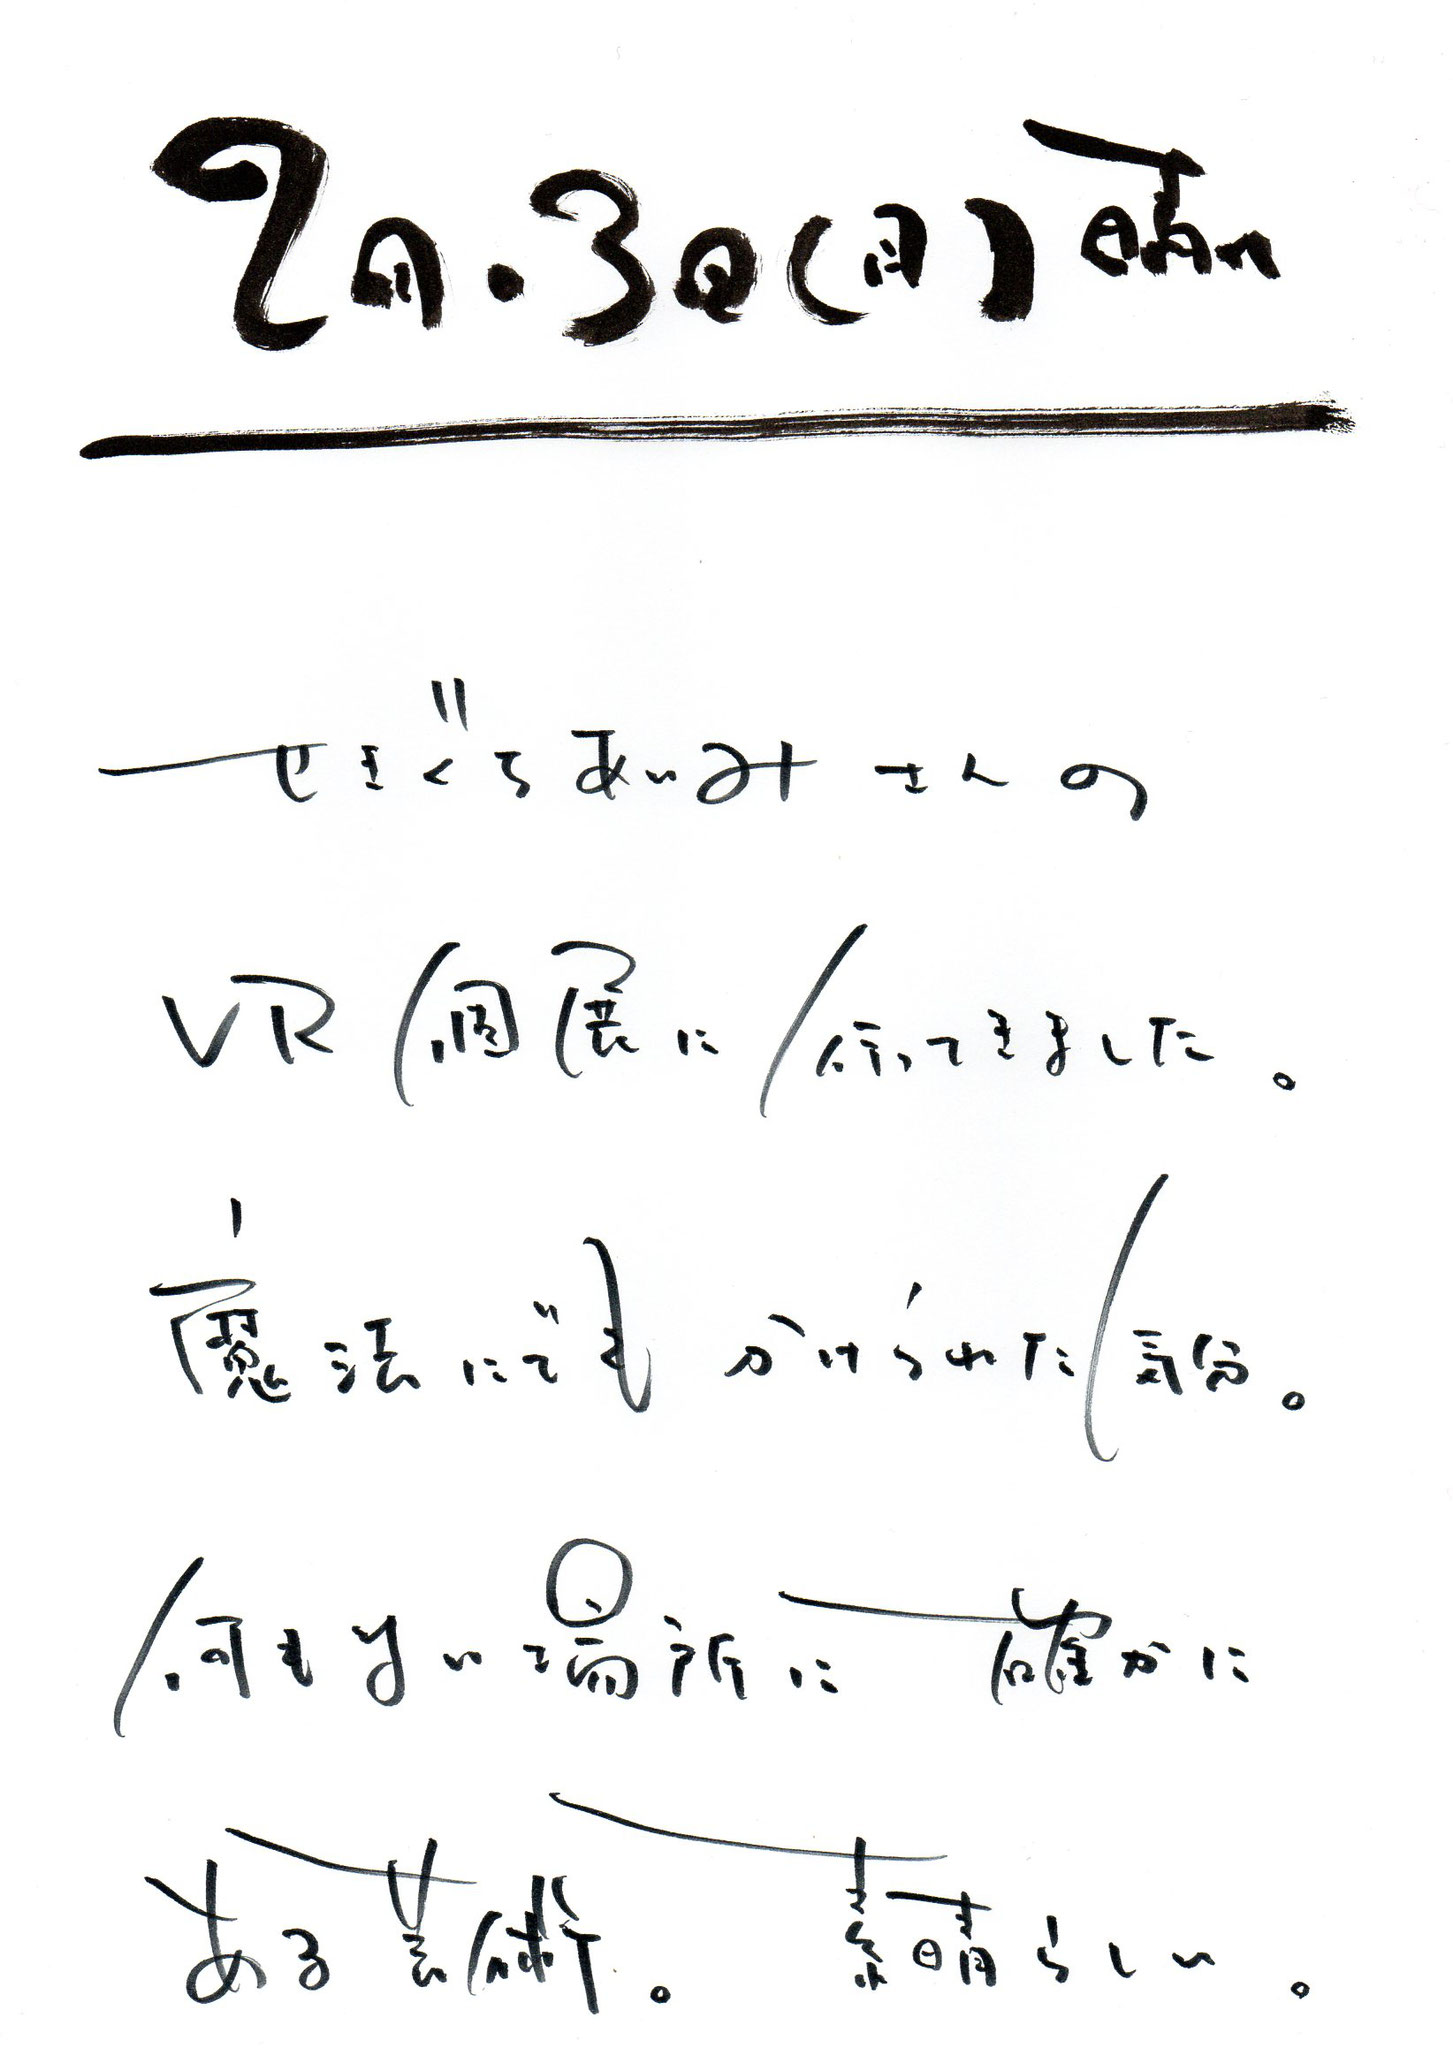 2月.3日(月)晴れ
せきぐちあいみさんの
VR個展に行ってきました。
魔法にでもかけられた気分。
何もない場所に確かに
ある芸術。素晴らしい。